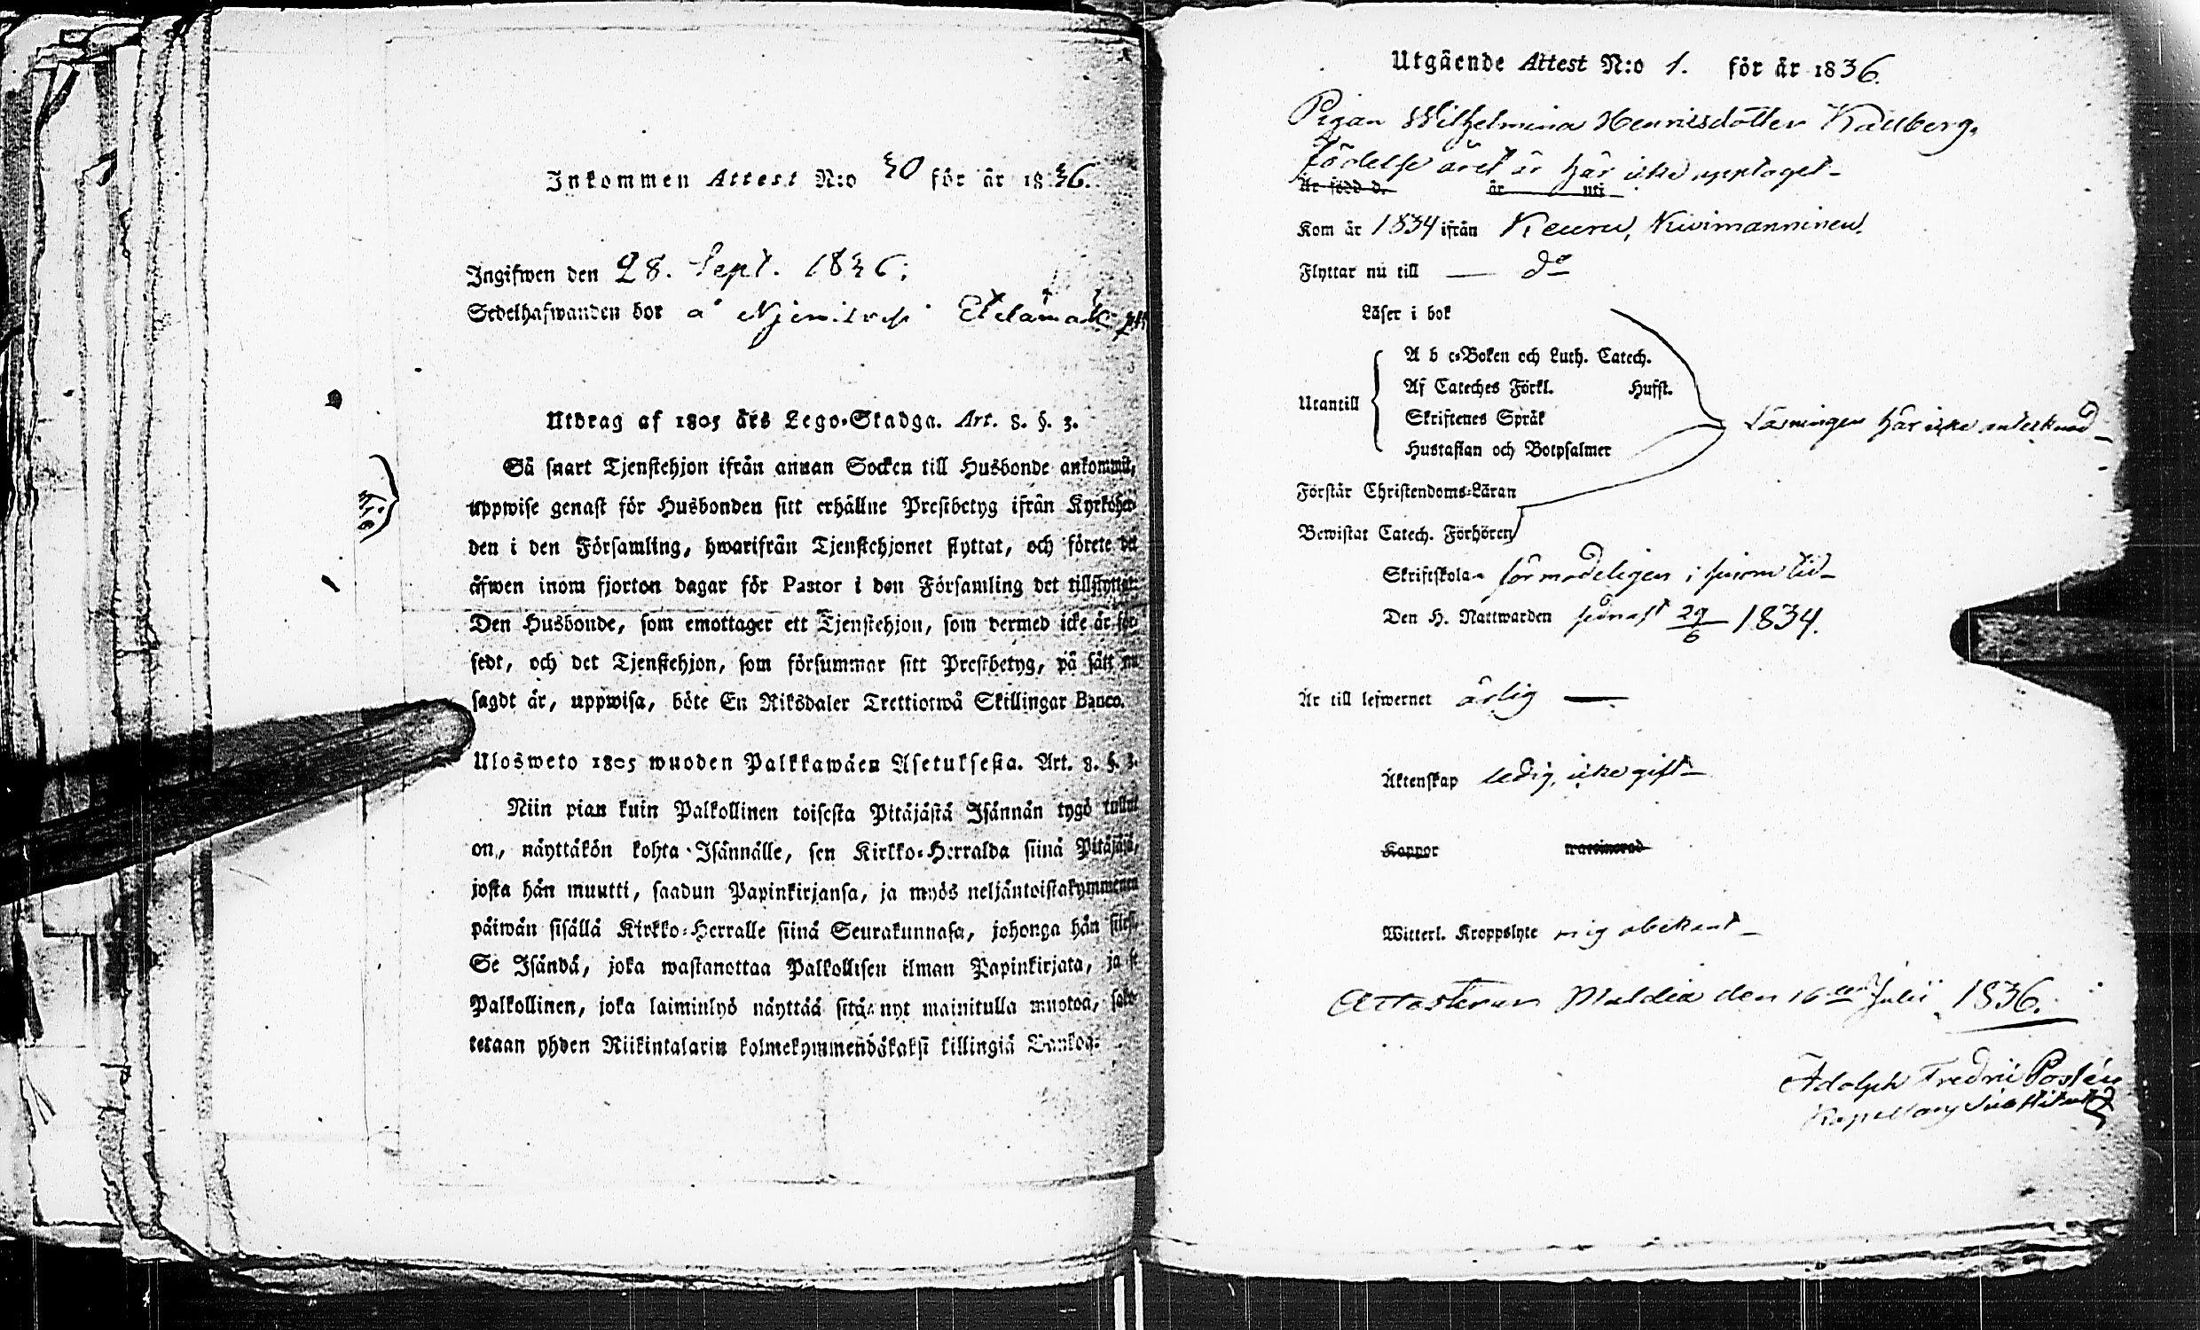 Inkommen Attest N:o 30 för år 1836.
Ingifwen den 28. Sept. 1836.
Sedelhafwanden bor å
Utdrag af 1805 års Lego-Stadga. Art. 8. §. 3.
Så snart Tjenstehjon ifrån annan Socken till Husbonde ankommit,
uppwise genast för Husbonden sitt erhållne Prestbetyg ifrån Kyrkoher-
den i den Församling, hwarifrån Tjenstehjonet flyttat, och förete det
äfwen inom fjorton dagar för Pastor i den Församling det tillflyttat.
Den Husbonde, som emottager ett Tjenstehjon, som dermed icke är för-
sedt, och det Tjenstehjon, som försummar sitt Prestbetyg, på sätt nu
sagdt är, uppwisa, böte En Riksdaler Trettiotwå Skillingar Banco.
Ulosweto 1805 wuoden Palkkawäen Asetuksesta. Art. 8. §. 3.
Niin pian kuin Palkollinen toisesta Pitäjästä Isännän tygö tullut
on, näyttäkön kohta Isännälle, sen Kirkko-Herralda siinä Pitäjäsä,
josta hän muutti, saadun Papinkirjansa, ja myös neljäntoistakymmenen
päiwän sisällä Kirkko-Herralle siinä Seurakunnasa, johonga hän
Se Isändä, joka wastanottaa Palkollisen ilman Papinkirjata, ja se
Palkollinen, joka laiminlyö näyttää sitä, nyt mainitulla muotoa, sako-
tetaan yhden Riikintalarin kolmekymmendäkaksi killingiä Bankoa.
Utgående Attest N:o 1. för år 1836.
Pigan Wilhelmina Henricsdotter Källberg.
födelse året är här icke upptaget
Är född d. år uti
Kom år 1834 ifrån Keuru, Kivimanninen.
Flyttar nu till — do
Läser i bok
A b c-Boken och Luth. Catech.
Af Cateches Förkl. Husst.
Utantill
Skriftenes Språk
Hustaflan och Botpsalmer
Läsningen här icke anteknad
Förstår Christendoms-Läran
Bewistat Catech. Förhören
Skriftskolan förmodeligen i sinom tid
Den H. Nattwarden sednast 29/6 1834.
Är till lefwernet ärlig —
Äktenskap ledig, icke gift
Koppor waccinerad
Witterl. Kroppslyte mig obekant
Attesterar Muldia den 16de Julii 1836.
Adolph Fredric Postén